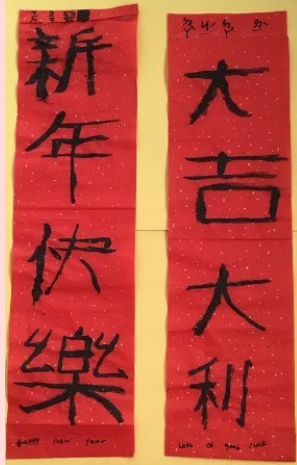 新年快樂
Happy new year
大吉大利
Lots of good luck